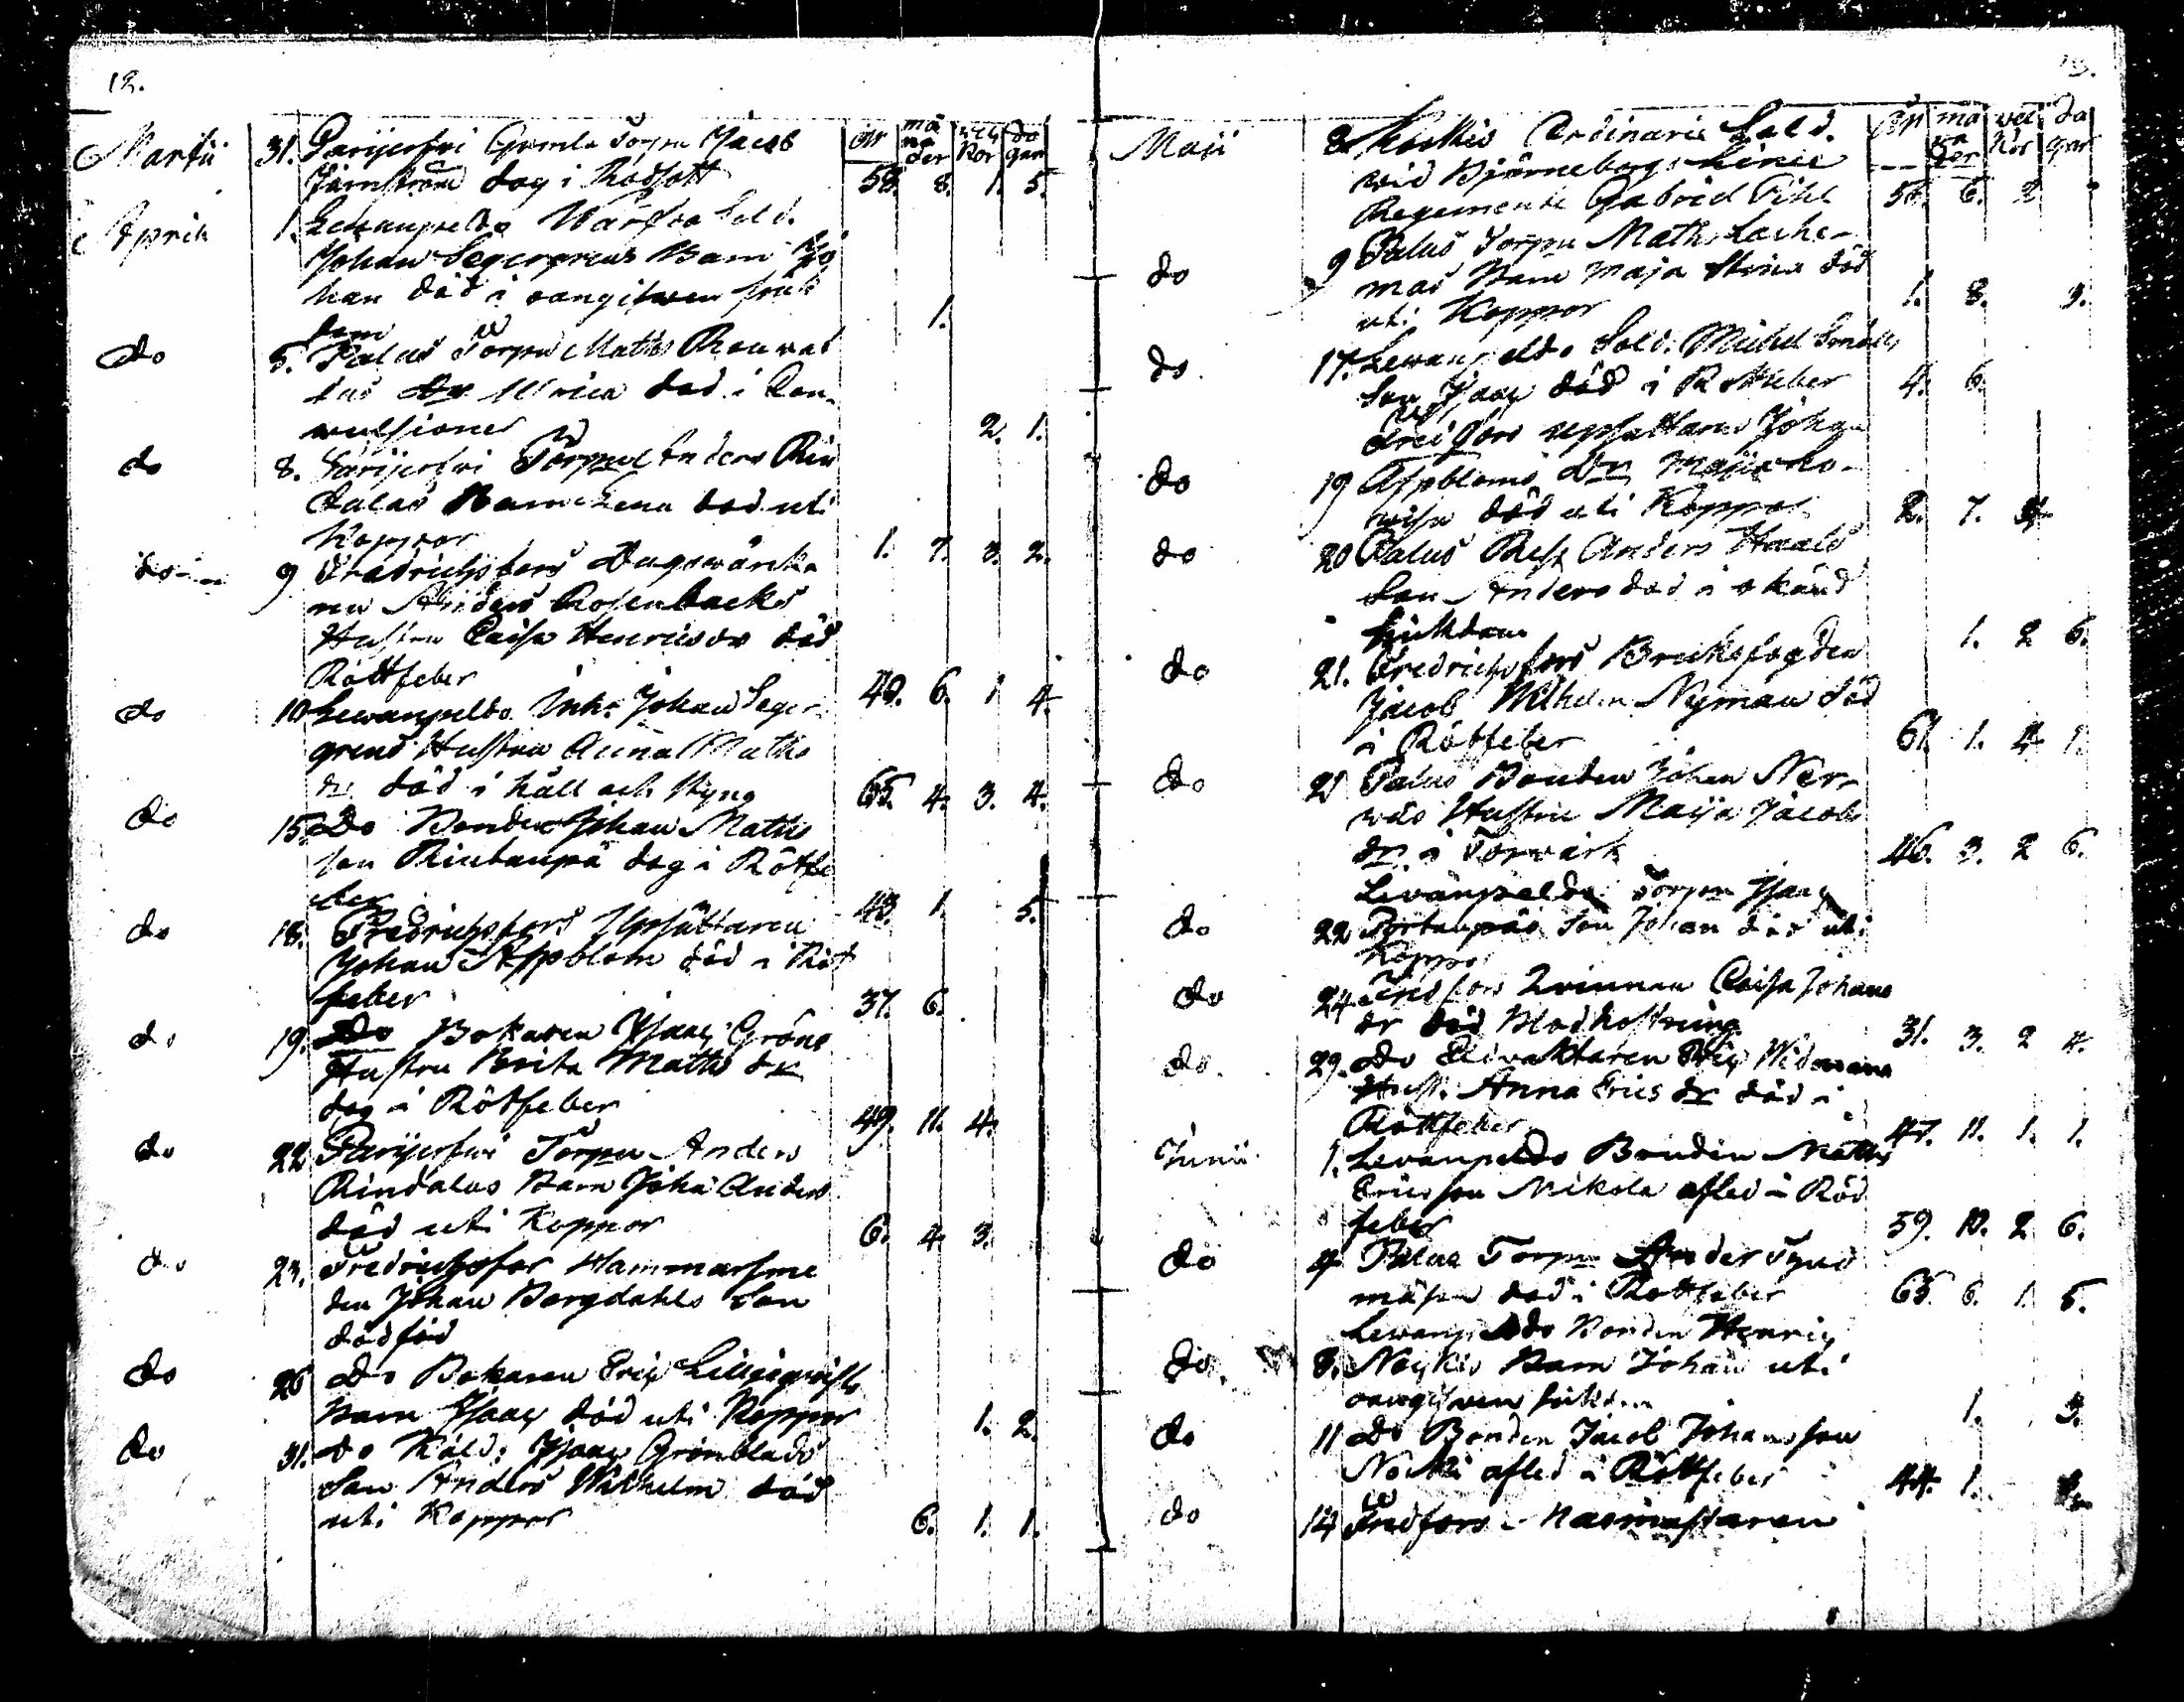 12.
Martii 31. Parijerfwi Gamla Torpn Jacob år må na der wec kor da gar
Järnström dog i Rödsott 58. 8. 1. 5.
Aprili 1. Lewanpeldo Sold.
Johan Segergrens Barn Jo
han död i oangifwen siuk
dom 1.
do 5. Palus Torpn Matts
dr Ulrica död i Con-
wulsioner 2. 1.
do 8. Parijerfwi Torpn Anders Rin
dalas Barn Lena död uti
Koppor 1. 7. 3. 2.
do 9 Fredrichsfors Dagswärcka
ren Anders Rosenbacks
Hustru Caisa Henrics dr död
Röttfeber 40. 6. 1 4.
do 10 Lewanpeldo Inh: Johan Seger
grens Hustru Anna Matts
dr död i håll och styng 65. 4. 3. 4.
do 15. Do Bonden Johan Matts
son Rintanpä dog i Rötfe
ber 43. 1. 5.
do 18. Fredrichsfors Upsättaren
Johan Aspblom död i Röt
feber 37. 6.
do 19. Do Bokaren Isaac Gröns
Hustru Brita Matts dr
dog i Rötfeber 49. 11. 4.
do 22 Parijerfwi Torpn Anders
Rindalas Barn Joha Anders
död uti Koppor 6. 4. 3.
do 23. Fredrichsfor Hammarsme
den Johan Bergdahls Son
dödföd
do 26 do Bokaren Eric
Barn Isaac död uti Koppor 1. 2.
do 31. do Kåld: Isaac Grönblads
Son Anders Wilhelm död
uti Koppor 6. 1. 1.
13.
Maii 8 Koskis Ordinarie Sold. År må na der vec kor da gar
wid Björneborgs Läns
Regemente Gabriel Pihl 56. 6. 2
do 9 Palus Torpn Matts
mas Barn Maja Stina död
uti Koppor 1. 8. 3.
do 17. Lewanpeldo Sold: Michel
Son Isaac död i Rötfeber 4. 6.
Fredrichsfors upsättaren Johan
do 19 Aspbloms Dr Maija Lo-
wisa död uti Koppor 2. 7. 4
do 20 Palus Anders
Son Anders död i okänd
siukdom 1. 2 6.
do 21. Fredrichsfors Bruksfogden
Jacob Wilhelm Nyman död
i Rötfeber 61. 1. 4 1.
do 21 Palus Bonden Johan Ner-
wäs Hustru Maija Jacobs
dr i Torwärk 46. 3. 2 6.
Lewanpeldo Torpn Isaac
do 22 Son Johan död uti
Koppor
do 24 Fredfors Qvinnan Caisa Johans
dr död Blodhostning 31. 3. 2 4.
do. 29. Do Eldvaktaren Eric Widmans
Hust. Anna Erics dr död i
Röttfeber 47. 11. 1. 1.
Junii 1. Lewanpeldo Bonden Matts
Ericsson Mikola afled i Röd
feber 59. 10. 2 6.
do 4 Palus Torpn Ander
död i Rottfeber 65. 6. 1. 5.
Lewanpeldo Bonden Henric
do. 8. Barn Johan uti
oangifwen siukdom 1. 3.
do 11 do Bonden Jacob Johansson
afled i Röttfeber 44. 1.
do 14 Fredfors Masmästaren